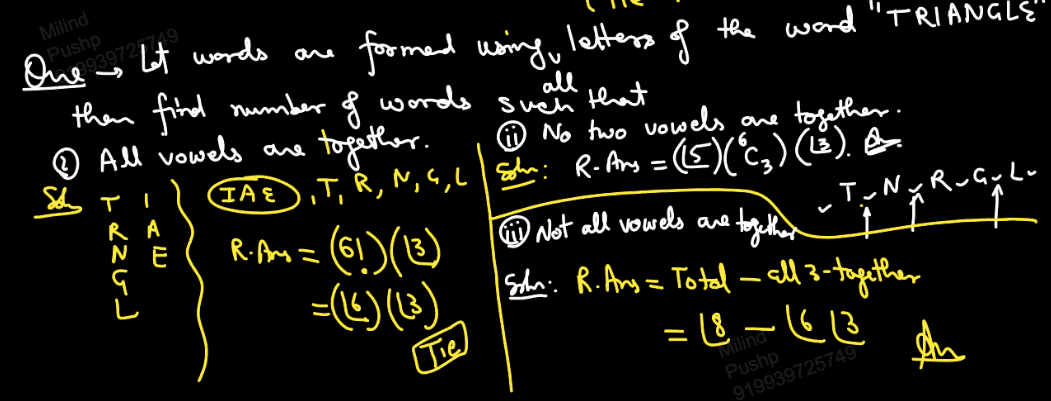 Que → Let words are formed using all letters of the word "TRIANGLE"
then find number of words such that
(i) All vowels are together.
Soln
T I
R A
N E
G
L
(IAE), T, R, N, G, L
R.Ans = (6!)(⌊3)
= (⌊6)(⌊3)
Tie
(ii) No two vowels are together.
Soln: R.Ans = (⌊5)(⁶C₃)(⌊3). Ans
✓ T ✓ N ✓ R ✓ G ✓ L ✓
(iii) Not all vowels are together
Soln: R.Ans = Total - all 3-together
= ⌊8 - ⌊6 ⌊3 Ans
Milind
Pushp
919939725749
Milind
Pushp
919939725749